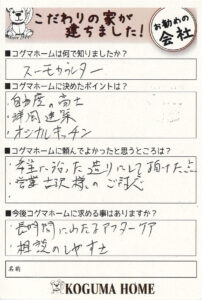 こだわりの家が
建ちました！
お勧めの
会社
■コグマホームは何で知りましたか？
スーモカウンター
■コグマホームに決めたポイントは？
・自由度の高さ
・
・オリジナルキッチン
■コグマホームに頼んでよかったと思うところは？
・希望に沿った造りにして頂けた点
・営業 様のご対応
・
■今後コグマホームに求める事はありますか？
・長時間にわたるアフターケア
・相談のしやすさ
名前
KOGUMA HOME